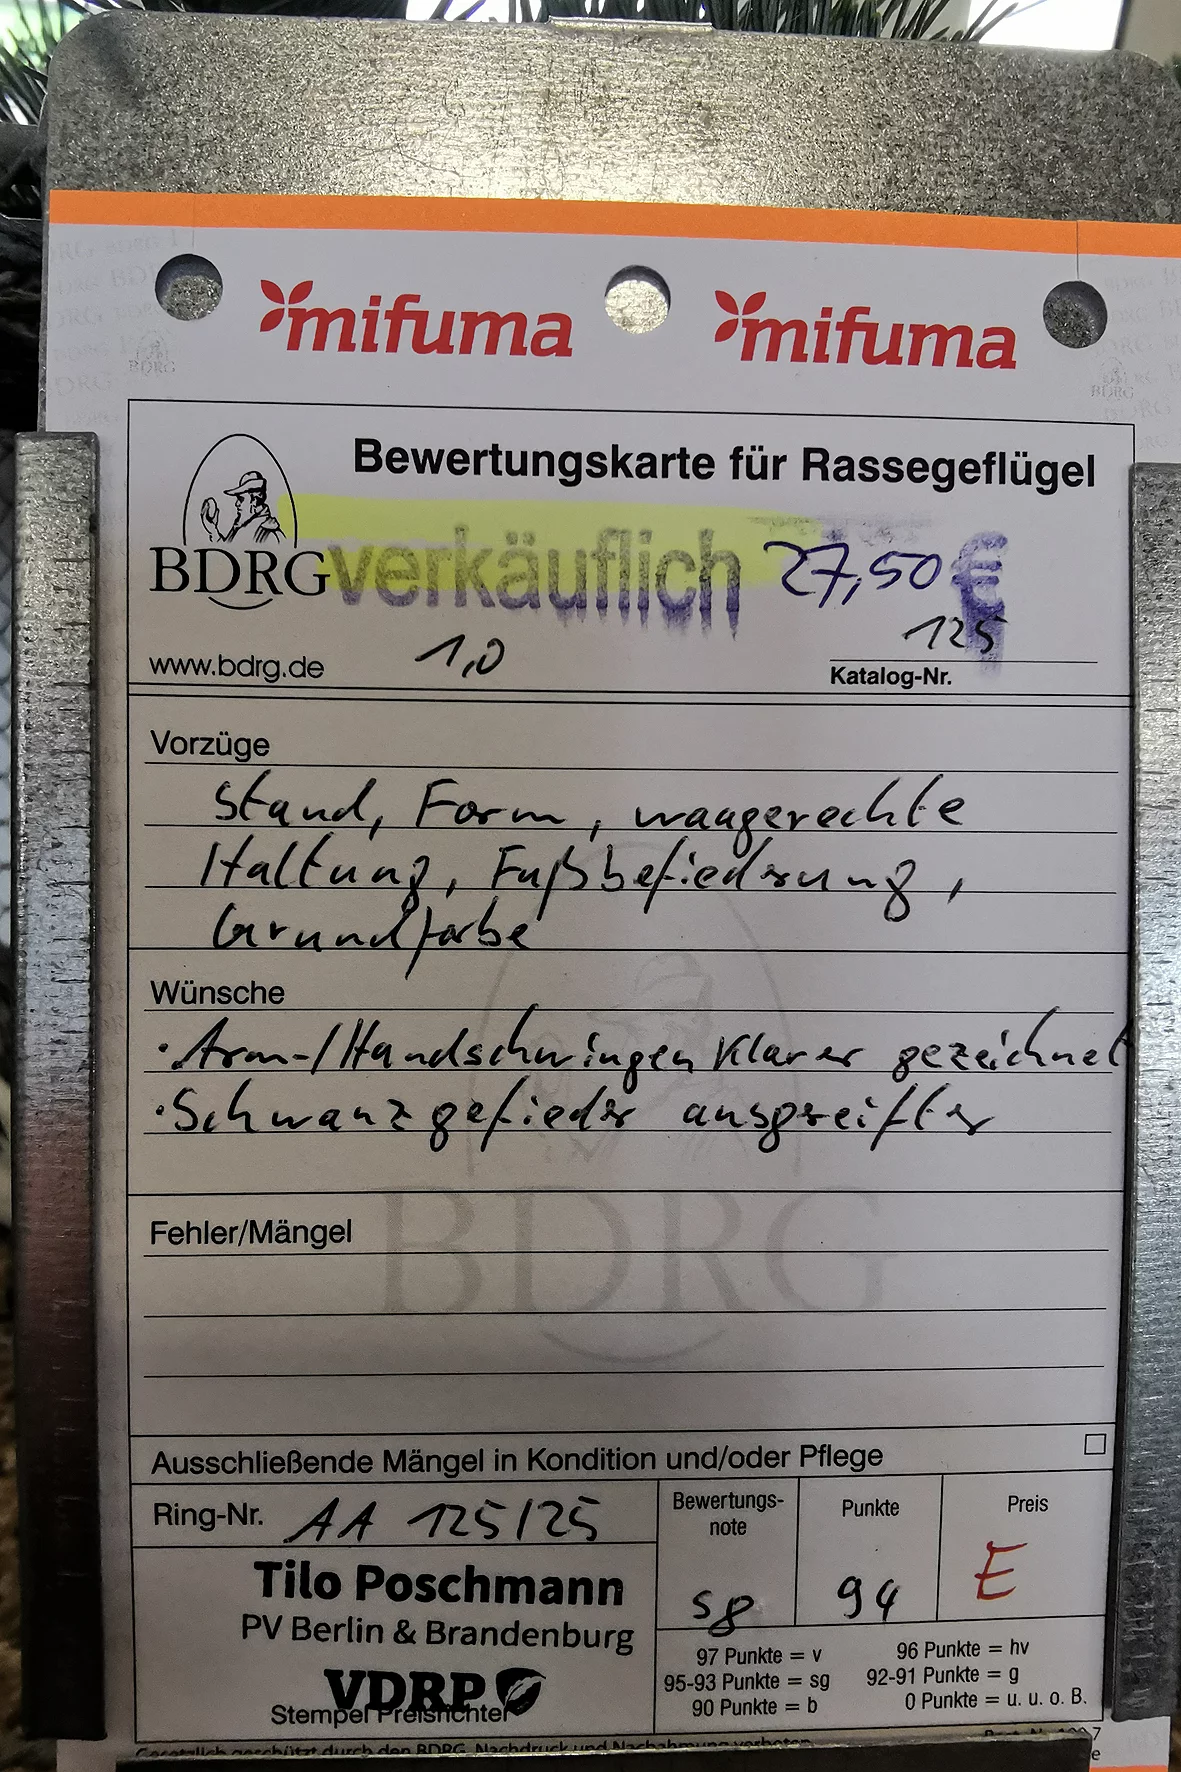 mifuma mifuma
Bewertungskarte für Rassegeflügel
BDRG verkäuflich 27,50 €
www.bdrg.de 1,0 125
Katalog-Nr.
Vorzüge
Stand, Form, waagerechte
Haltung, Fußbefiederung,
Grundfarbe
Wünsche
· Arm-/Handschwingen klarer gezeichnet
· Schwanzgefieder ausgereifter
BDRG
Fehler/Mängel
Ausschließende Mängel in Kondition und/oder Pflege
Ring-Nr. AA 125/25
Bewertungs-
note
Punkte
Preis
sg 94 E
Tilo Poschmann
PV Berlin & Brandenburg
VDRP
Stempel Preisrichter
97 Punkte = v 96 Punkte = hv
95-93 Punkte = sg 92-91 Punkte = g
90 Punkte = b 0 Punkte = u. u. o. B.
Gesetzlich geschützt durch den BDRG. Nachdruck und Nachahmung verboten.